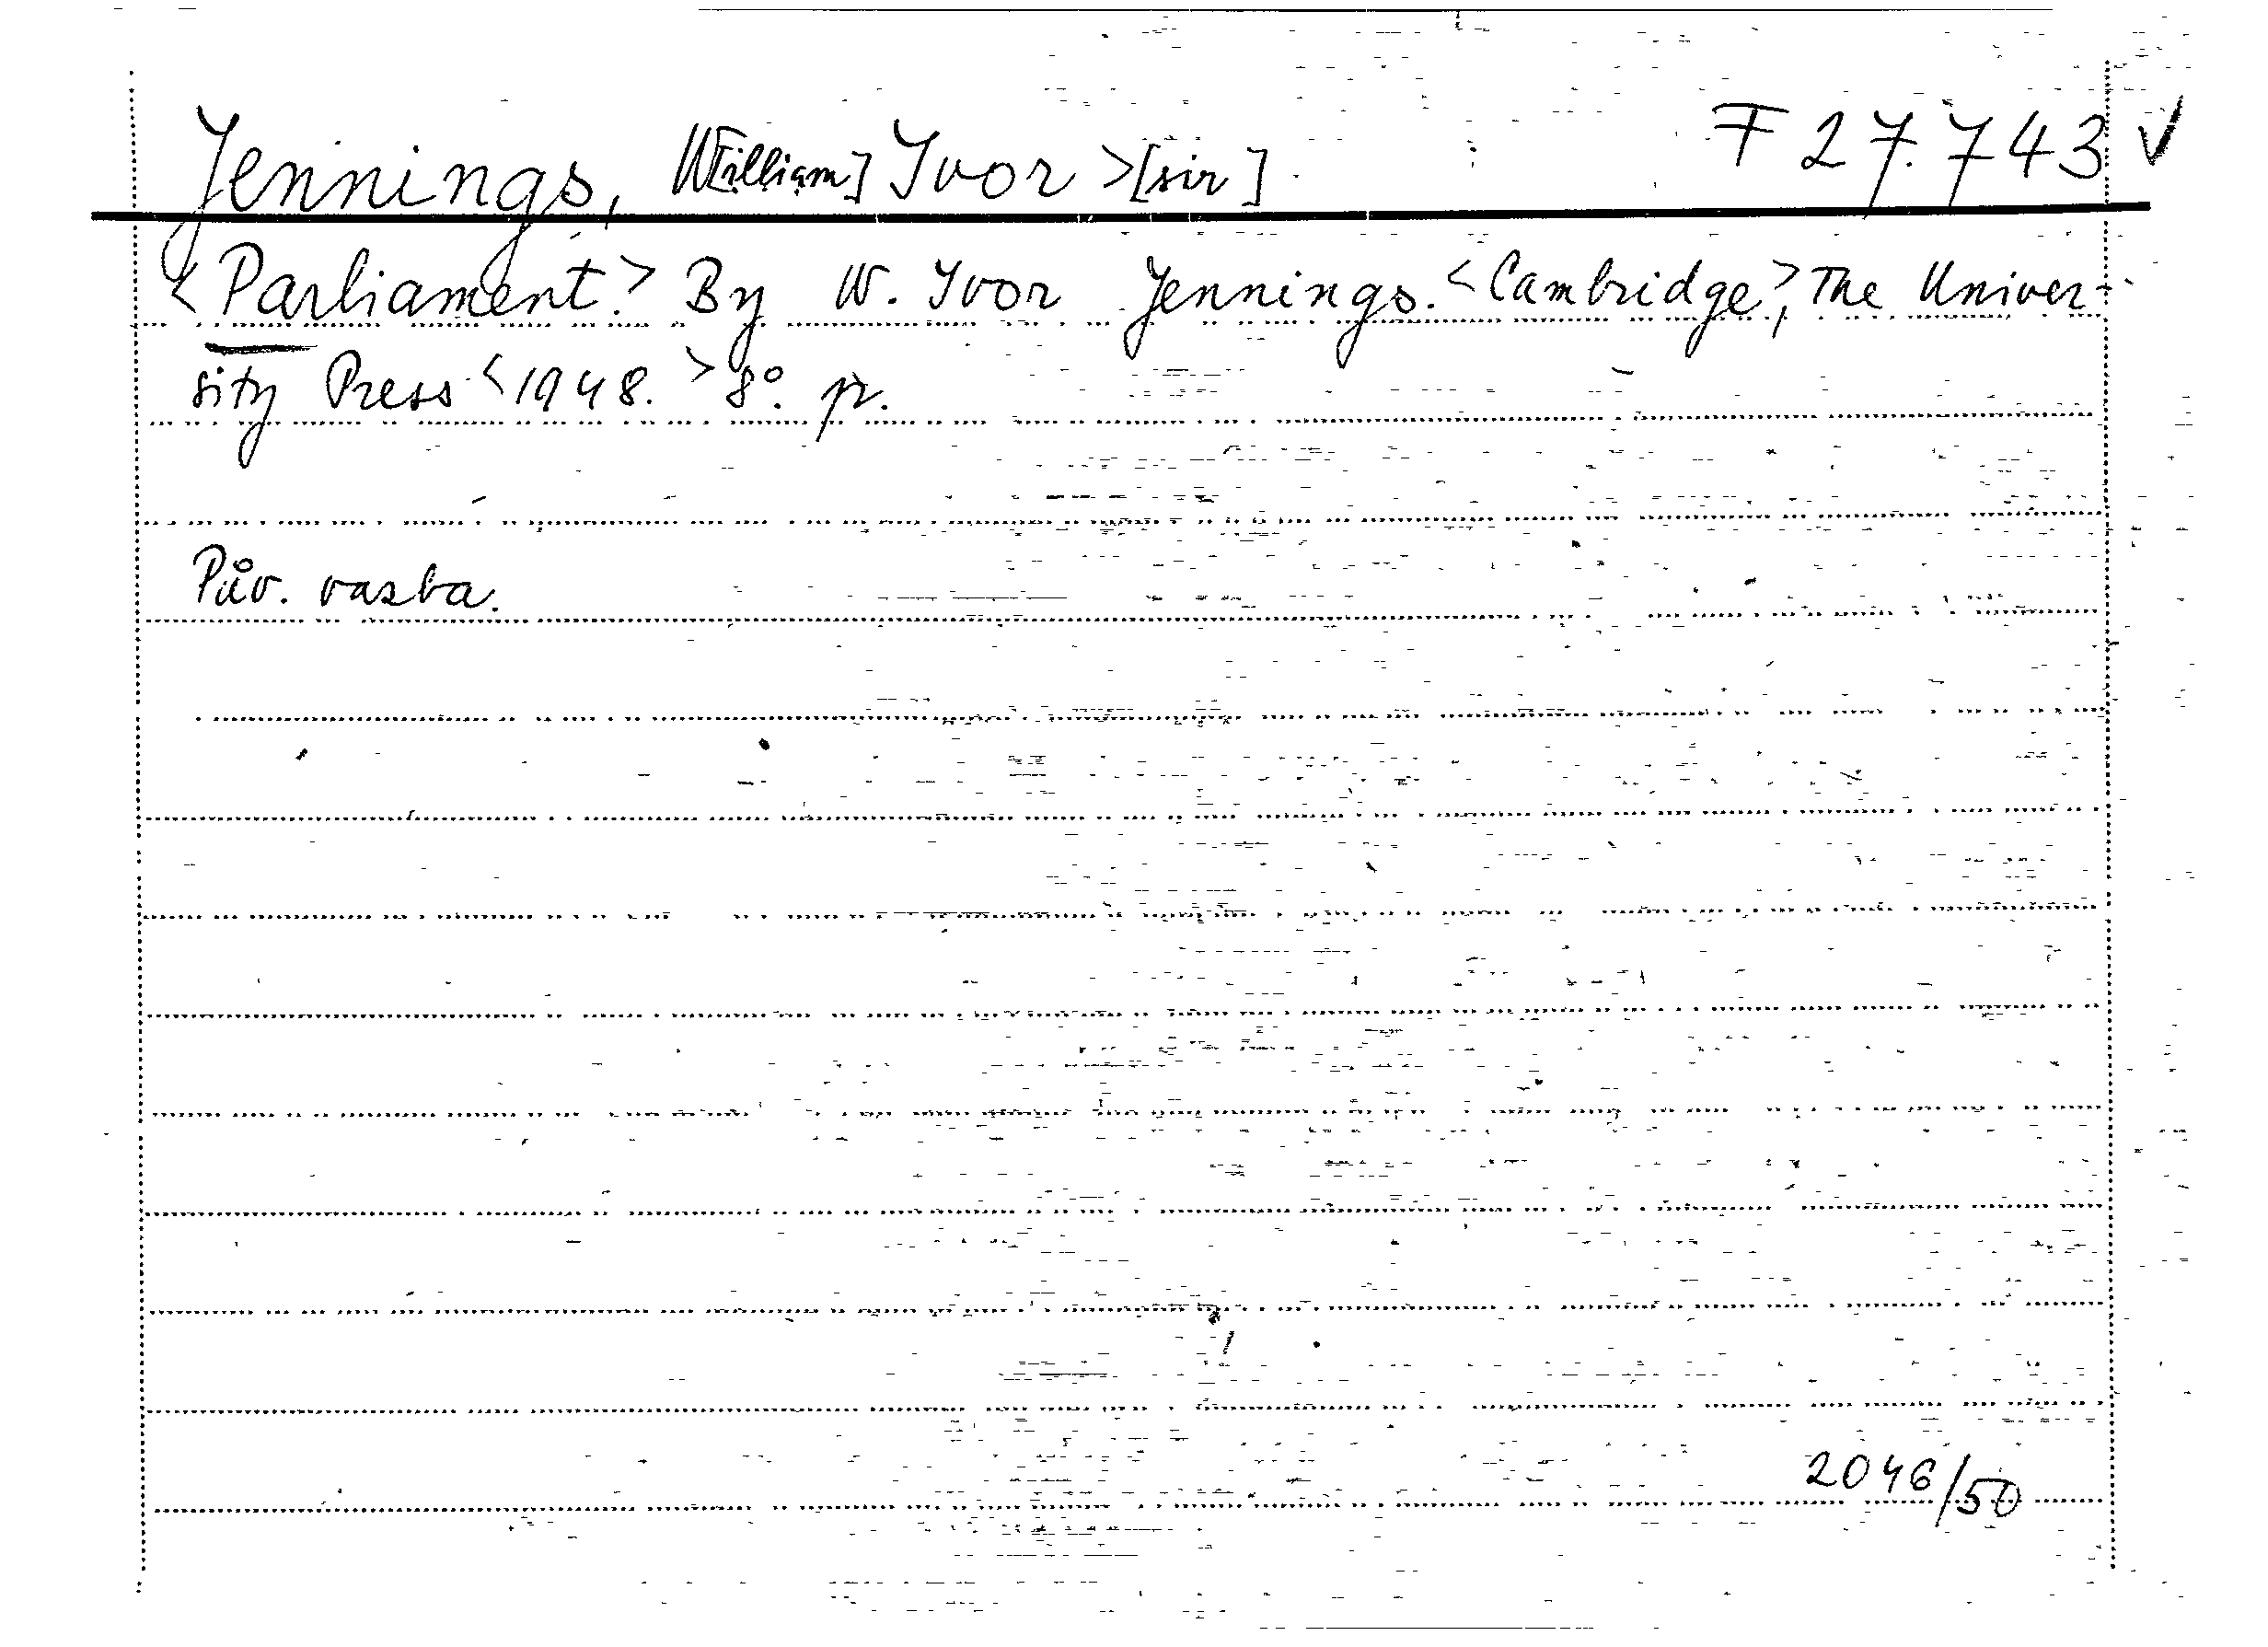 Jennings, W[illiam] Ivor >[sir] F 27.743 ✓
<Parliament.> By W. Ivor Jennings. <Cambridge>, The Univer-
sity Press <1948.> 8°. p.
Pův. vazba.
2046/50